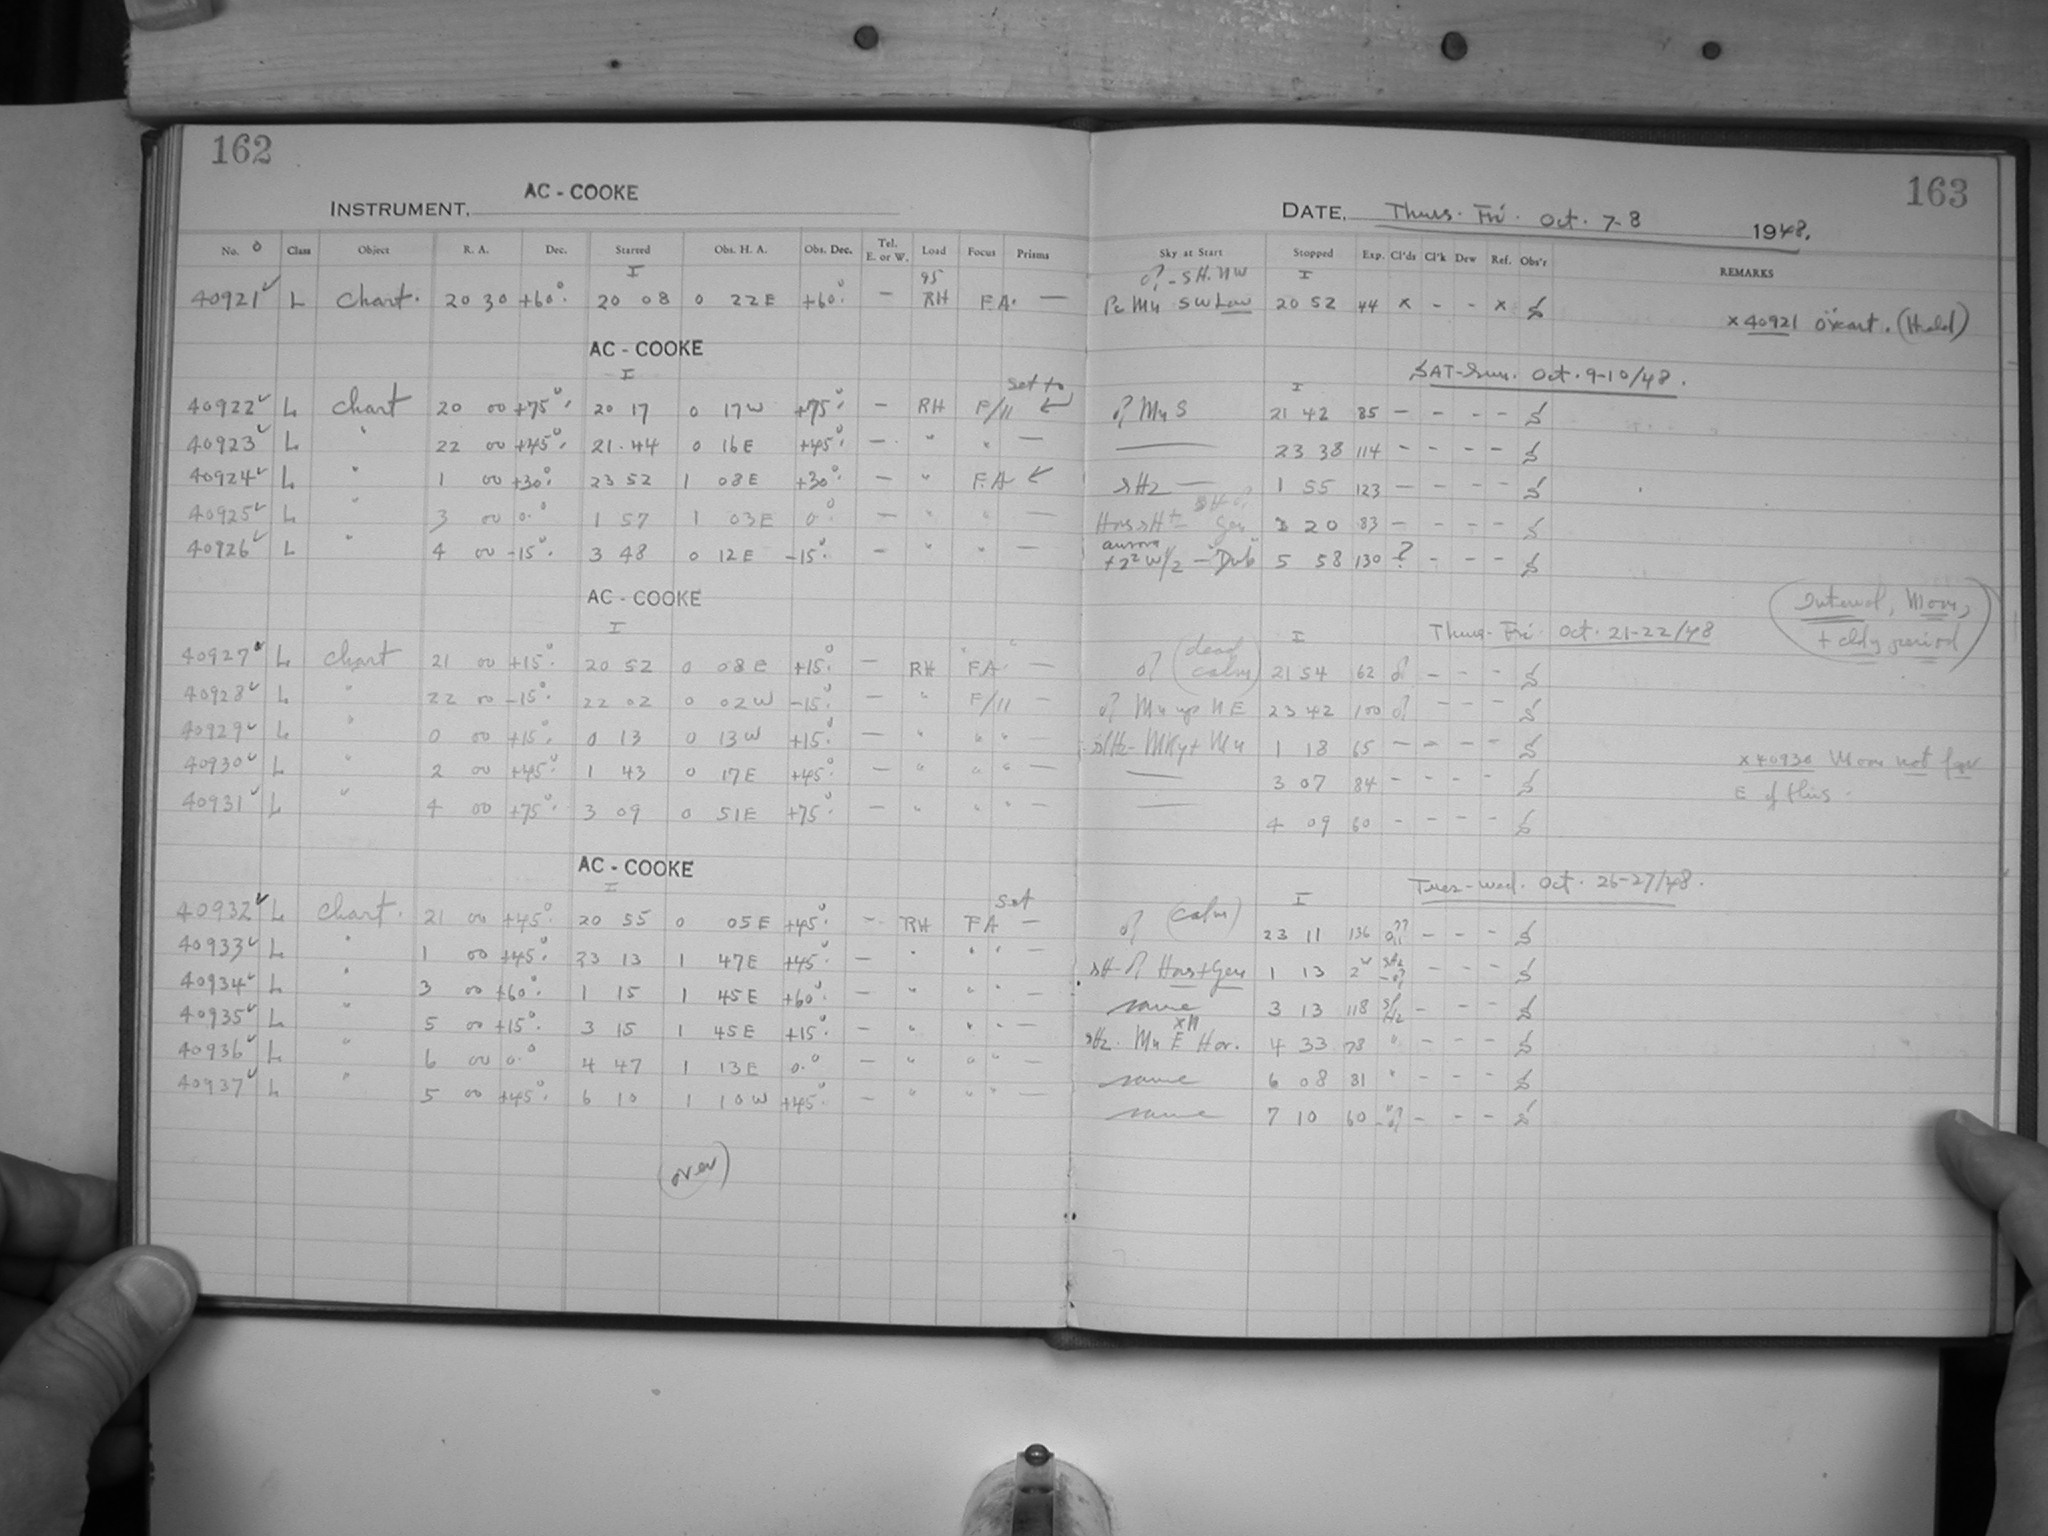 162
AC - COOKE
INSTRUMENT,
No. Class Object R. A. Dec. Started Obs. H. A. Obs. Dec. Tel. E. or W. Load Focus Prisms
I 95
40921 L Chart. 20 30 +60° 20 08 0 22E +60° — RH F.A. —
AC - COOKE
I set to
40922 L Chart 20 00 +75° 20 17 0 17W +75° — RH F/11
40923 L " 22 00 +45° 21.44 0 16E +45° — " " —
40924 L " 1 00 +30° 23 52 1 08E +30° — " F.A
40925 L " 3 00 0° 1 57 1 03E 0° — " " —
40926 L " 4 00 -15° 3 48 0 12E -15° — " " —
AC - COOKE
I
40927 L Chart 21 00 +15° 20 52 0 08E +15° — RH FA —
40928 L " 22 00 -15° 22 02 0 02W -15° — " F/11 —
40929 L " 0 00 +15° 0 13 0 13W +15° — " " " —
40930 L " 2 00 +45° 1 43 0 17E +45° — " " " —
40931 L " 4 00 +75° 3 09 0 51E +75° — " " " —
AC - COOKE
I set
40932 L Chart. 21 00 +45° 20 55 0 05E +45° — RH FA —
40933 L " 1 00 +45° 23 13 1 47E +45° — " " " —
40934 L " 3 00 +60° 1 15 1 45E +60° — " " " —
40935 L " 5 00 +15° 3 15 1 45E +15° — " " " —
40936 L " 6 00 0° 4 47 1 13E 0° — " " " —
40937 L " 5 00 +45° 6 10 1 10W +45° — " " " —
(over)
163
DATE, Thurs. Fri. Oct. 7-8 1948.
Sky at Start Stopped Exp. Cl'ds Cl'k Dew Ref. Obs'r REMARKS
I
SW Low 20 52 44 x - - x
x 40921
SAT-Sun. Oct. 9-10/48.
I
21 42 85 - - - -
23 38 114 - - - -
sHz 1 55 123 - - - -
20 83 - - - -
aurora
5 58 130 ? - - -
(Interval, Moon,
+ cldy period)
Thurs-Fri. Oct. 21-22/48
I
(dead calm) 21 54 62 - - -
NE 23 42 100 - - -
1 18 65 - - - -
3 07 84 - - - -
x 40930 Moon not far
E of this.
4 09 60 - - - -
Tues-Wed. Oct. 26-27/48.
I
(calm) 23 11 136 - - -
1 13 - - -
same 3 13 118 - - -
E Hor. 4 33 78 " - - -
same 6 08 81 " - - -
same 7 10 60 - - -